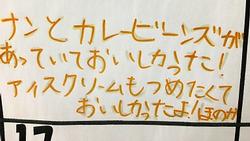 ナンとカレービーンズが
あっていておいしかった!
アイスクリームもつめたくて
おいしかったよ!ほのか
17